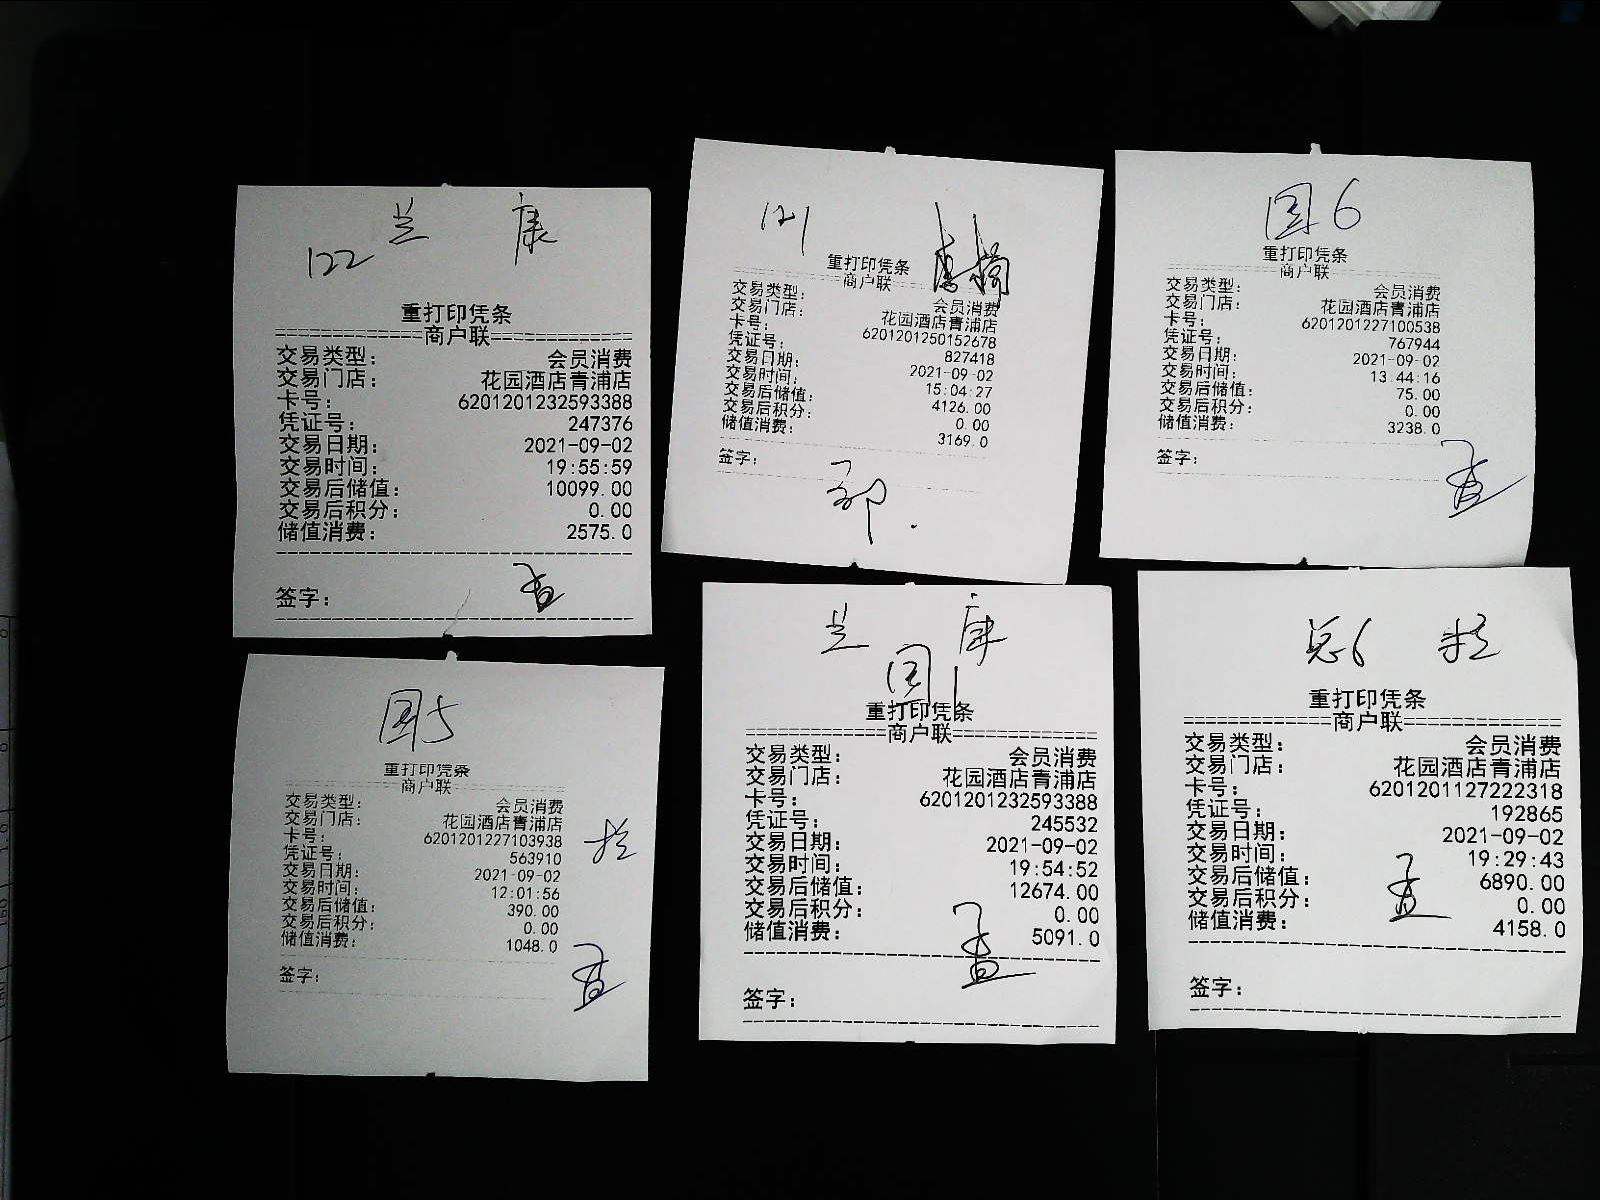 122
重打印凭条
商户联
交易类型： 会员消费
交易门店： 花园酒店青浦店
卡号： 6201201232593388
凭证号： 247376
交易日期： 2021-09-02
交易时间： 19:55:59
交易后储值： 10099.00
交易后积分： 0.00
储值消费： 2575.0
签字：
121
重打印凭条
商户联
交易类型： 会员消费
交易门店： 花园酒店青浦店
卡号： 6201201250152678
凭证号： 827418
交易日期： 2021-09-02
交易时间： 15:04:27
交易后储值： 4126.00
交易后积分： 0.00
储值消费： 3169.0
签字：
国6
重打印凭条
商户联
交易类型： 会员消费
交易门店： 花园酒店青浦店
卡号： 6201201227100538
凭证号： 767944
交易日期： 2021-09-02
交易时间： 13:44:16
交易后储值： 75.00
交易后积分： 0.00
储值消费： 3238.0
签字：
国5
重打印凭条
商户联
交易类型： 会员消费
交易门店： 花园酒店青浦店
卡号： 6201201227103938
凭证号： 563910
交易日期： 2021-09-02
交易时间： 12:01:56
交易后储值： 390.00
交易后积分： 0.00
储值消费： 1048.0
签字：
国1
重打印凭条
商户联
交易类型： 会员消费
交易门店： 花园酒店青浦店
卡号： 6201201232593388
凭证号： 245532
交易日期： 2021-09-02
交易时间： 19:54:52
交易后储值： 12674.00
交易后积分： 0.00
储值消费： 5091.0
签字：
总6
重打印凭条
商户联
交易类型： 会员消费
交易门店： 花园酒店青浦店
卡号： 6201201127222318
凭证号： 192865
交易日期： 2021-09-02
交易时间： 19:29:43
交易后储值： 6890.00
交易后积分： 0.00
储值消费： 4158.0
签字：